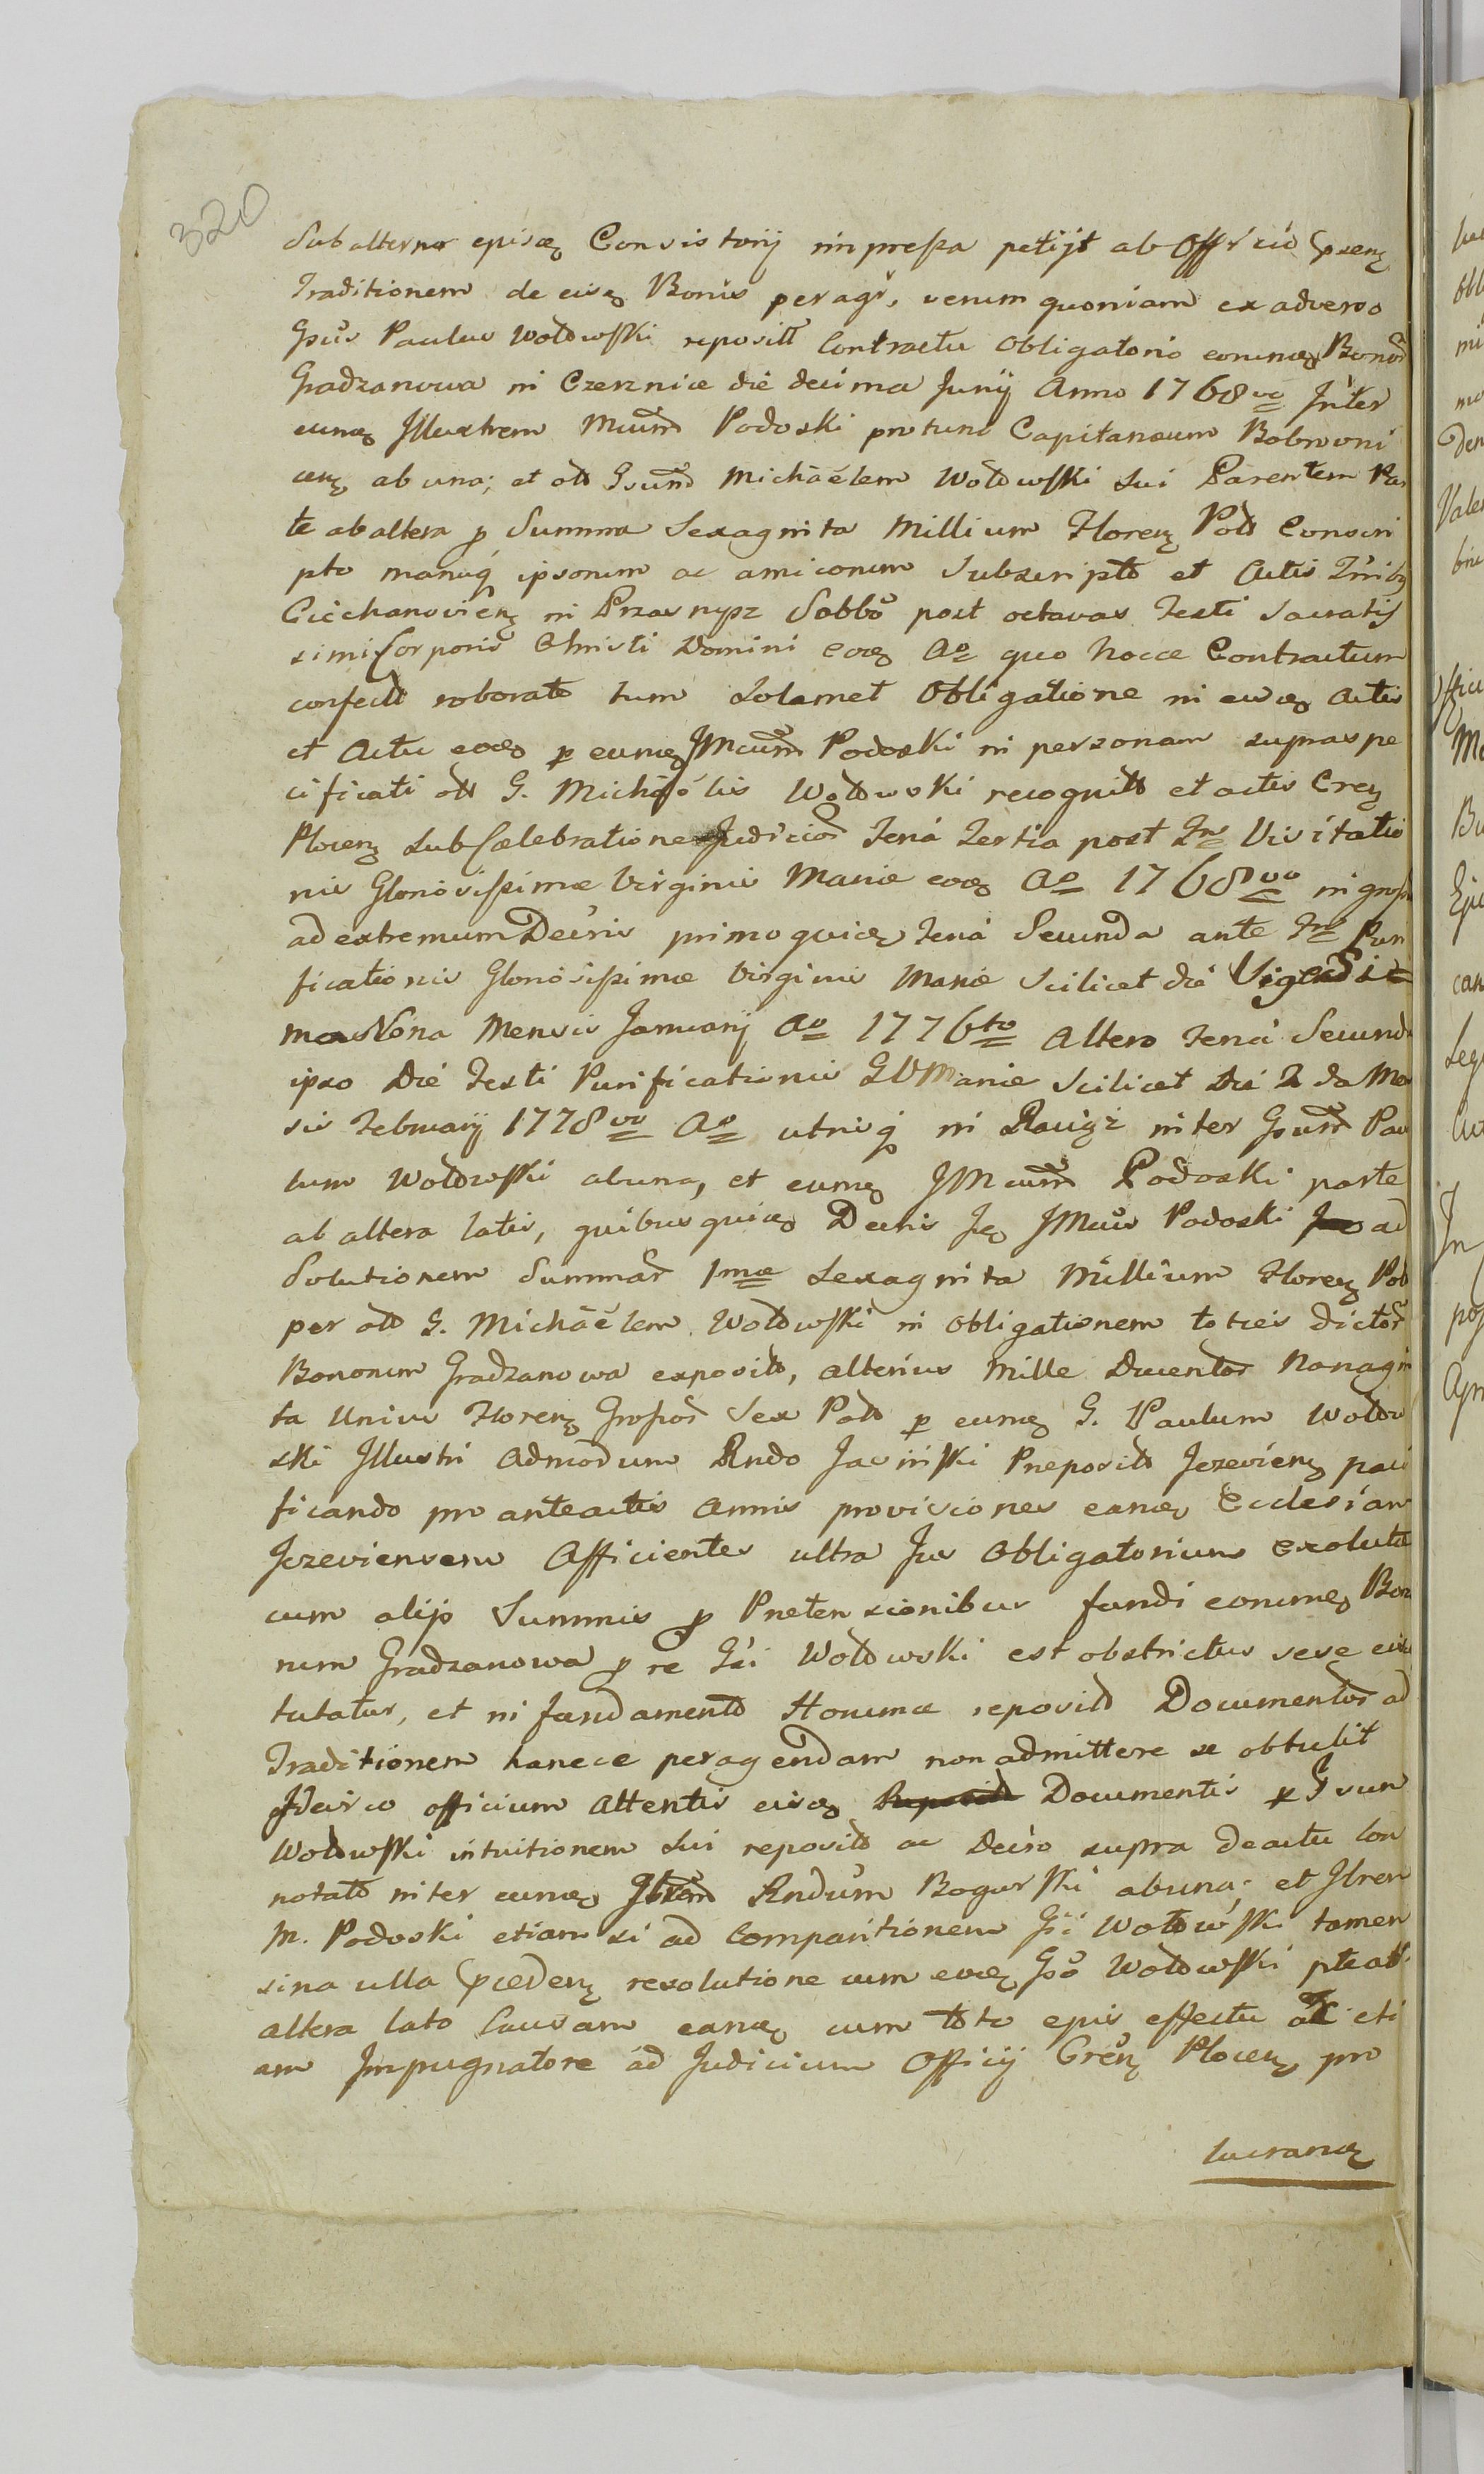 320
Subalterna episq Consistorij impressa petijt ab Officio Ppsenz
Traditionem de eisq Bonis peragi, verum quoniam ex adverso
Gsus Paulus Wołdowski reposito Contractu Obligatorio eorumq Bonor
Gradzanowa in Czernice die decima Junij Anno 1768vo Inter
eumq Illustrem Mcum Podoski protunc Capitaneum Bobrovni
cenz ab una; et old Gsum Michaelem Wołdowski sui Parentem Par
te ab altera p Summa Sexaginta Millium Florenz Pold Conscri
pto manuq ipsorum ac amicorum Subscripto et Actis Trribz
Ciechanovienz in Przasnysz Sabbo post octavas Festi Sacratis
simi Corporis Christi Domini eoq Ao quo hocce Contractum
confectd roborato tum Solamet Obligatione in eisq Actis
et Actu eoq p eumq JMcum Podoski in personam supraspe
cificati old G. Michaelis Wołdowski recognitd et actis Crenz
Plocenz sub Caelebratione Judicior Feria Tertia post Fm Visitatio
nis Gloriosissimae Virginis Mariae eoq Ao 1768vo ingross
ad extremum Decris primo quiq Feria Secunda ante Fm Puri
ficationis Gloriosissimae Virginis Mariae Scilicet die Vigesi
ma Nona Mensis Januarij Ao 1776to Altero Feria Secunda
ipso Die Festi Purificationis GVMariae Scilicet Die 2da Men
sis Februarij 1778vo Ao utriq in Raciąż inter Gsum Pau
lum Wołdowski ab una, et eumq JMcum Podoski parte
ab altera latis, quibus quiq Decris Iq JMcus Podoski ad
Solutionem Summar 1mae Sexaginta Millium Florenz Pold
per old G. Michaelem Wołdowski in Obligationem toties dictor
Bonorum Gradzanowa expositd, alterius Mille Ducentor Nonagin
ta Unius Florenz Grossor Sex Pold p eumq G. Paulum Wołdow
ski Illustri Admodum Rndo Jasiński Preposito Jezevienz paci
ficando pro anteactis Annis provisiones eamq Ecclesiam
Jezeviensem Afficientes ultra Jus Obligatorium exoluta
cum alijs Summis p Pretensionibus fundi eorumq Bono
rum Gradzanowa p re Gsi Wołdowski est obstrictus sese evic
tutatur, et in fundamento Horumce reposito Documentor ad
Traditionem hancce peragendam non admittere se obtulit
Idcirco officium Attentis eisq Documentis p Gsum
Wołdowski intuitionem sui reposito ac Decro supra de actu con
notato inter eumq Rndum Bogurski ab una; et Ilrem
M. Podoski etiam si ad Comparitionem Gsi Wołdowski tamen
sina ulla Ppcedenz resolutione cum eoq Gso Wołdowski pte ab
altera lato Causam eamq cum toto epis effectu ac eti
am Impugnatore ad Judicium Officij Crenz Plocenz pro
lucranq